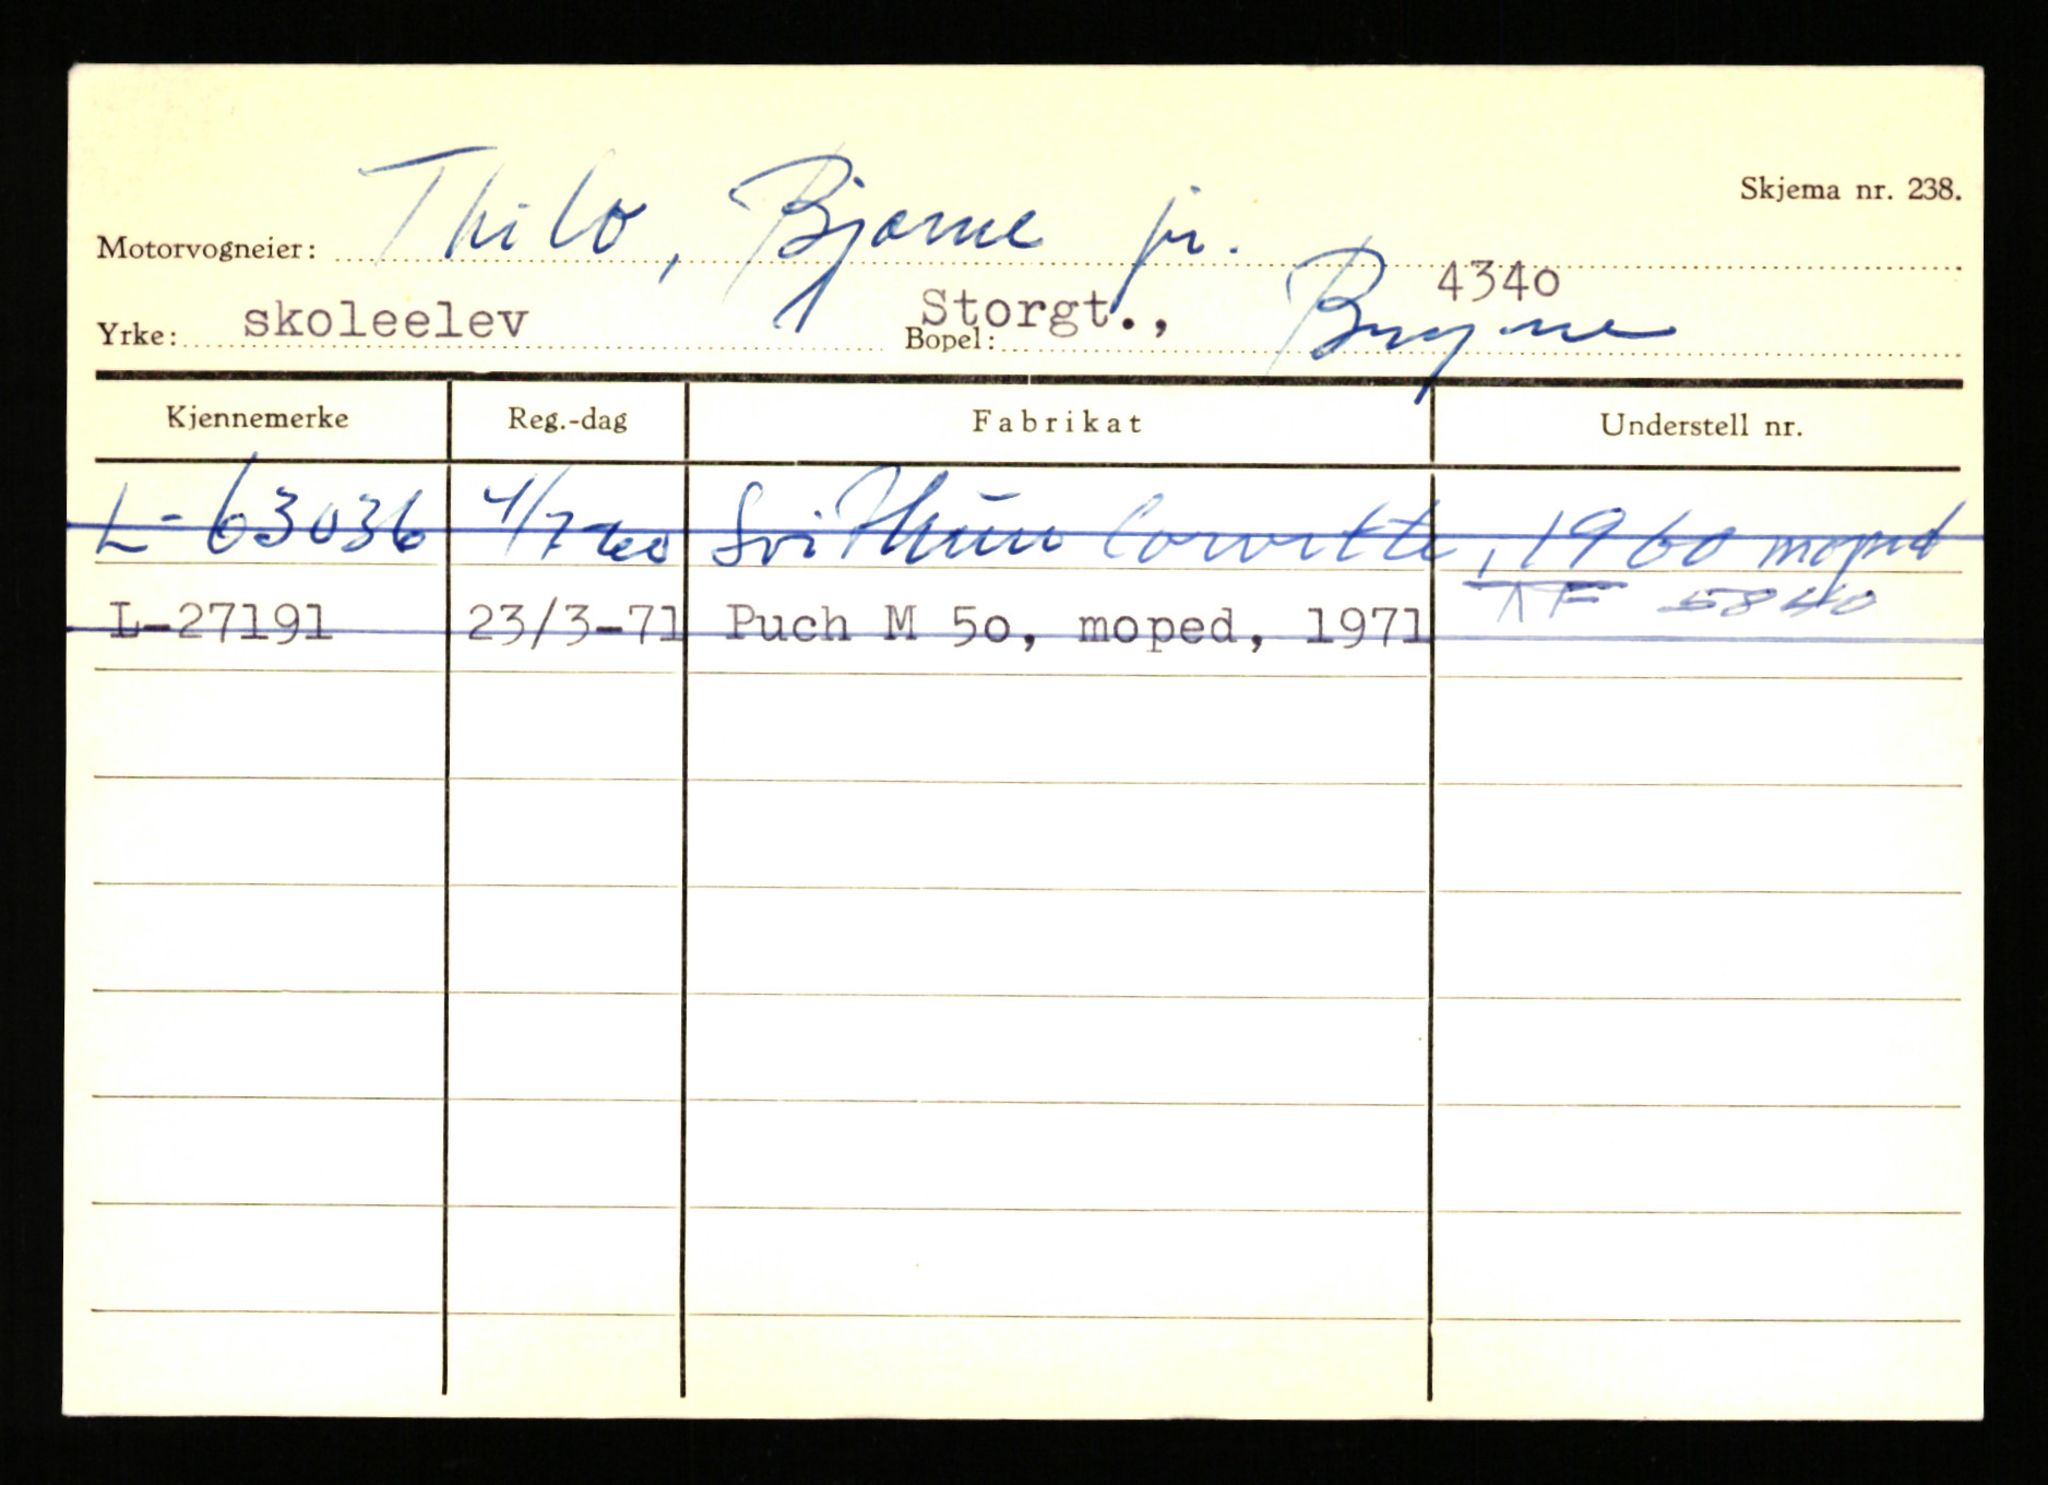 Skjema nr. 238.
Motorvogneier: Thilo, Bjarne jr.
4340
Yrke: skoleelev Bopel: Storgt., Bryne
Kjennemerke Reg.-dag Fabrikat Understell nr.
L-63036 4/7-60 Svithun Corvette, 1960 moped
5840
L-27191 23/3-71 Puch M 50, moped, 1971